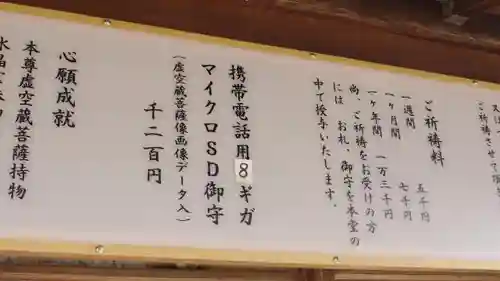 ご祈祷させて頂
ご祈祷料
一週間　五千円
一ヶ月間　七千円
一ヶ年間　一万三千円
尚、ご祈祷をお受けの方
には お札、御守を本堂の
中で授与いたします。
携帯電話用8ギガ
マイクロSD御守
(虚空蔵菩薩像画像データ入)
千二百円
心願成就
本尊虚空蔵菩薩持物